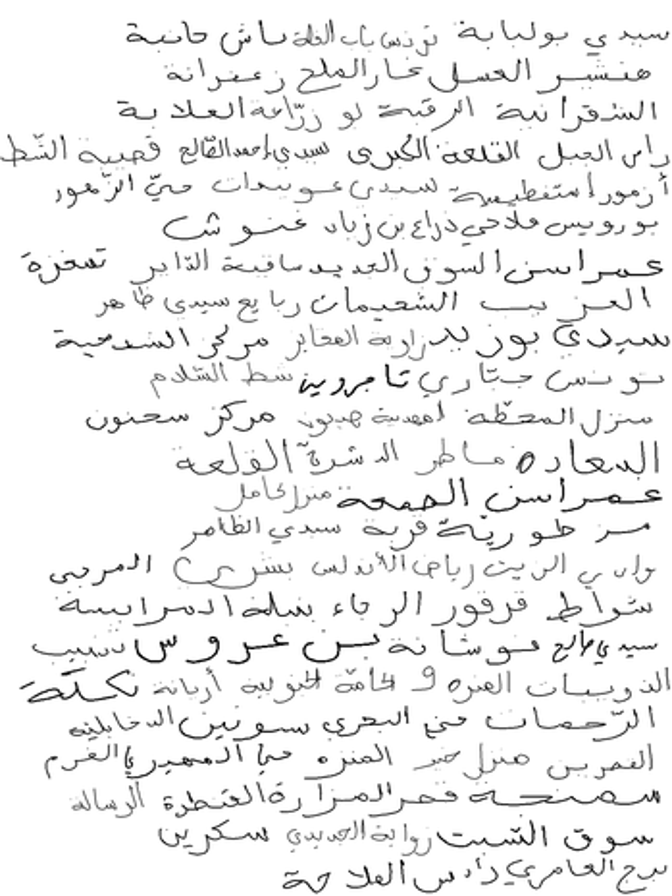 سيدي بولبابة تونس باب الفلة باش حانبة
هنشير العسل غار الملح زعفرانة
الشقرانية الرقبة لو زراعة العلابة
راس الجبل القلعة الكبرى سيدي احمد الصالح قصيبة الشط
أزمور سيدي عويدات حيّ الزهور
بورويس فلاحي ذراع بن زياد غنوش
عمراسن السوق الجديد ساقية الداير تمغزة
الشعيمات ربايع سيدي ظاهر
سيدي بوزيد زاوية المغايز مركز
تونس جبّاري تامزوين شط السّلام
منزل المحطّة مركز سحنون
السعادة ماطر الدشرة القلعة
عمراسن الجمعة منزل كامل
مرطورية قرية سيدي الظاهر
وادي الزيت رياض الأندلس بشري
شواط قرقور الرجاء سلة
سيدي صالح فوشانة بن عروس شبيب
الذويبات المنزه 9 الحامّة الجنوبية أريانة تكلسة
الرّحمات حي البحري سونين الدخايلية
القصرين منزل حر المنزه حي المهيري القرم
قصر المزارة القنطرة الرسالة
سوق السّبت زواية الجديدي سكرين
برج العامري رادس الملاحة